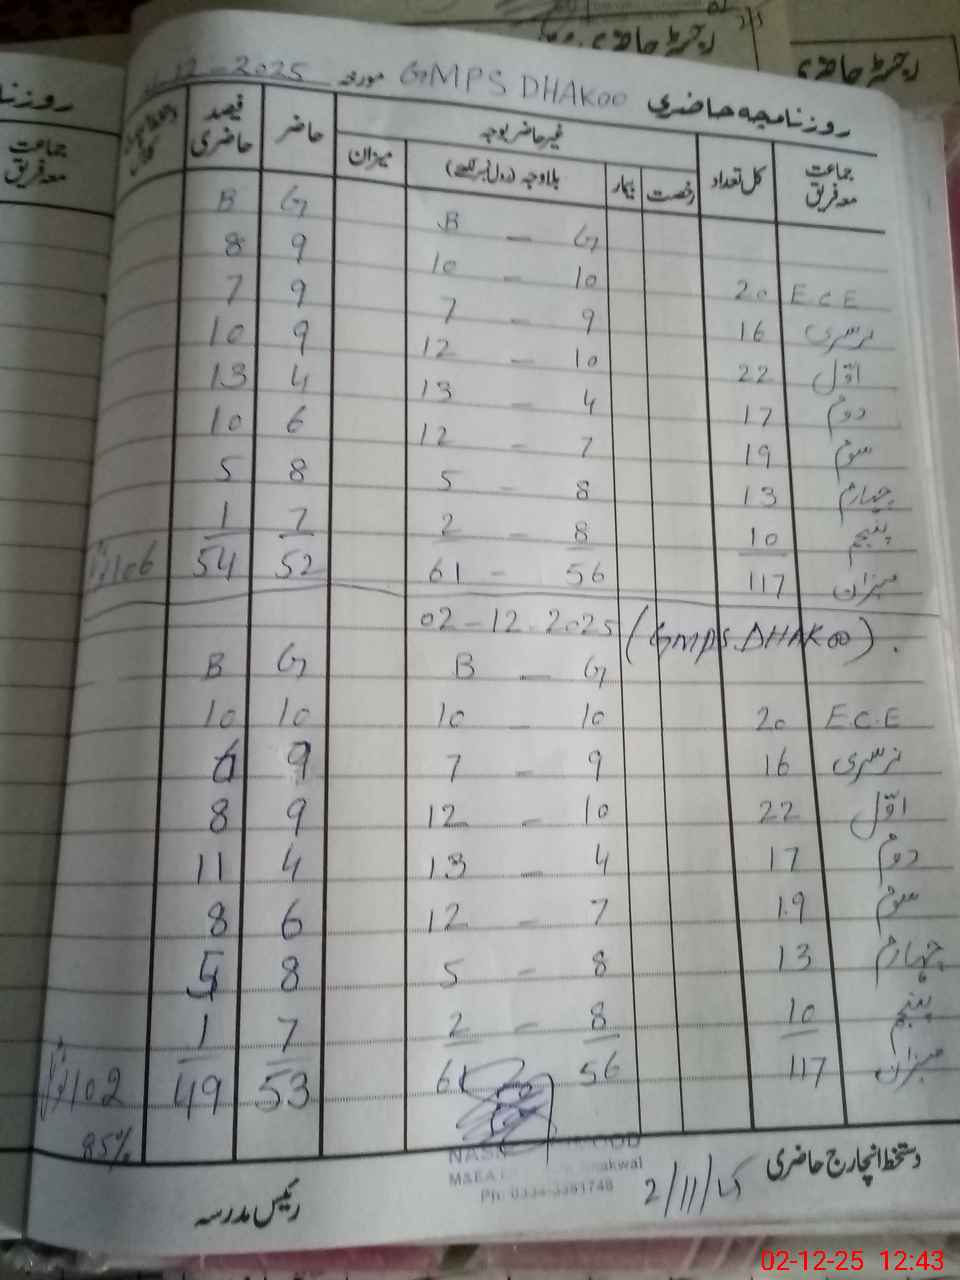 رجسٹر حاضری
رجسٹر حاضری
روزنامچہ حاضری GMPS DHAKOO مورخہ 12-2025
جماعت معہ فریق کل تعداد غیر حاضر بوجہ حاضر فیصد حاضری
رخصت بیمار بلاوجہ (رول نمبر لکھیے) میزان
G - B G B
E C E 20 10 - 10 9 8
نرسری 16 9 - 7 9 7
اوّل 22 10 - 12 9 10
دوم 17 4 - 13 4 13
سوم 19 7 - 12 6 10
چہارم 13 8 - 5 8 5
پنجم 10 8 - 2 7 1
میزان 117 56 - 61 52 54 106
02-12-2025 (GMPS.DHAKOO).
G - B G B
E.C.E 20 10 - 10 10 10
نرسری 16 9 - 7 9 6
اوّل 22 10 - 12 9 8
دوم 17 4 - 13 4 11
سوم 19 7 - 12 6 8
چہارم 13 8 - 5 8 5
پنجم 10 8 - 2 7 1
میزان 117 56 61 53 49 102
85%
دستخط انچارج حاضری
2/11/25
رئیس مدرسہ
جماعت معہ فریق
02-12-25 12:43